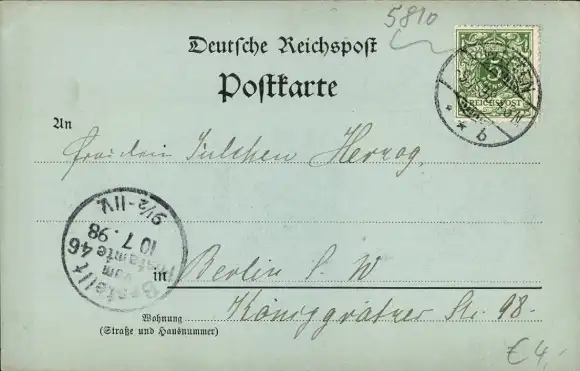 5810
Deutsche Reichspost
Postkarte
5
REICHSPOST
b
An
Fräulein Julchen Herzog,
Bestellt
vom
Postamte 46
10 7. 98
9½-11V.
in Berlin S. W
Wohnung
(Straße und Hausnummer)
Königgrätzer Str. 98.
€4,-